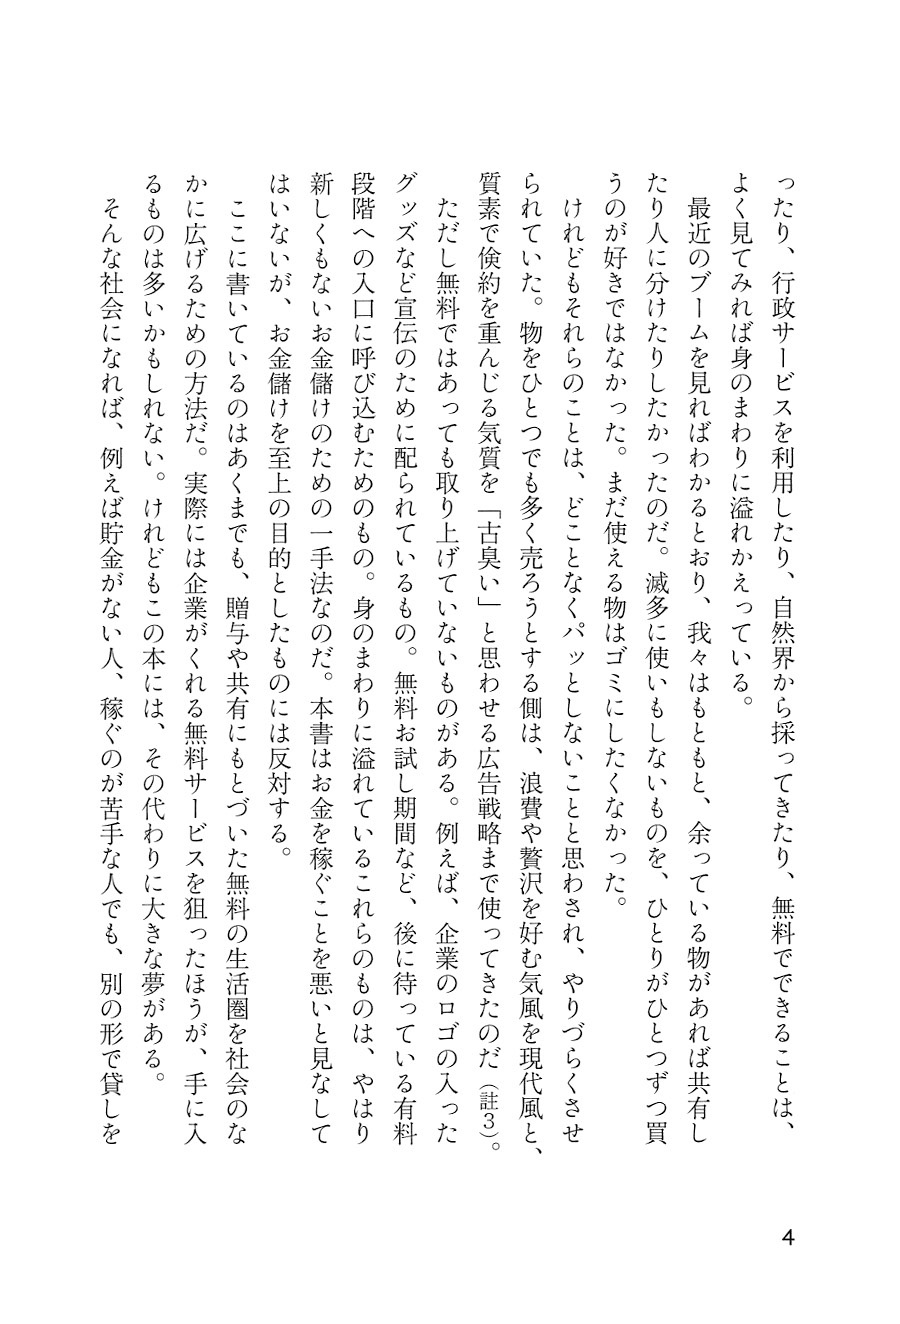 ったり、行政サービスを利用したり、自然界から採ってきたり、無料でできることは、
よく見てみれば身のまわりに溢れかえっている。
最近のブームを見ればわかるとおり、我々はもともと、余っている物があれば共有し
たり人に分けたりしたかったのだ。滅多に使いもしないものを、ひとりがひとつずつ買
うのが好きではなかった。まだ使える物はゴミにしたくなかった。
けれどもそれらのことは、どことなくパッとしないことと思わされ、やりづらくさせ
られていた。物をひとつでも多く売ろうとする側は、浪費や贅沢を好む気風を現代風と、
質素で倹約を重んじる気質を「古臭い」と思わせる広告戦略まで使ってきたのだ（註3）。
ただし無料ではあっても取り上げていないものがある。例えば、企業のロゴの入った
グッズなど宣伝のために配られているもの。無料お試し期間など、後に待っている有料
段階への入口に呼び込むためのもの。身のまわりに溢れているこれらのものは、やはり
新しくもないお金儲けのための一手法なのだ。本書はお金を稼ぐことを悪いと見なして
はいないが、お金儲けを至上の目的としたものには反対する。
ここに書いているのはあくまでも、贈与や共有にもとづいた無料の生活圏を社会のな
かに広げるための方法だ。実際には企業がくれる無料サービスを狙ったほうが、手に入
るものは多いかもしれない。けれどもこの本には、その代わりに大きな夢がある。
そんな社会になれば、例えば貯金がない人、稼ぐのが苦手な人でも、別の形で貸しを
4